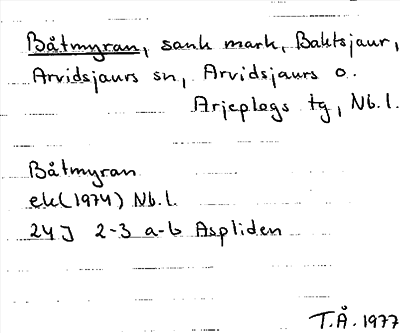 Båtmyran, sank mark, Baktsjaur,
Arvidsjaurs sn, Arvidsjaurs o.
Arjeplogs tg, Nb.l.
Båtmyran
ek(1974) Nb.l.
24J 2-3 a-b Aspliden
T.Å. 1977